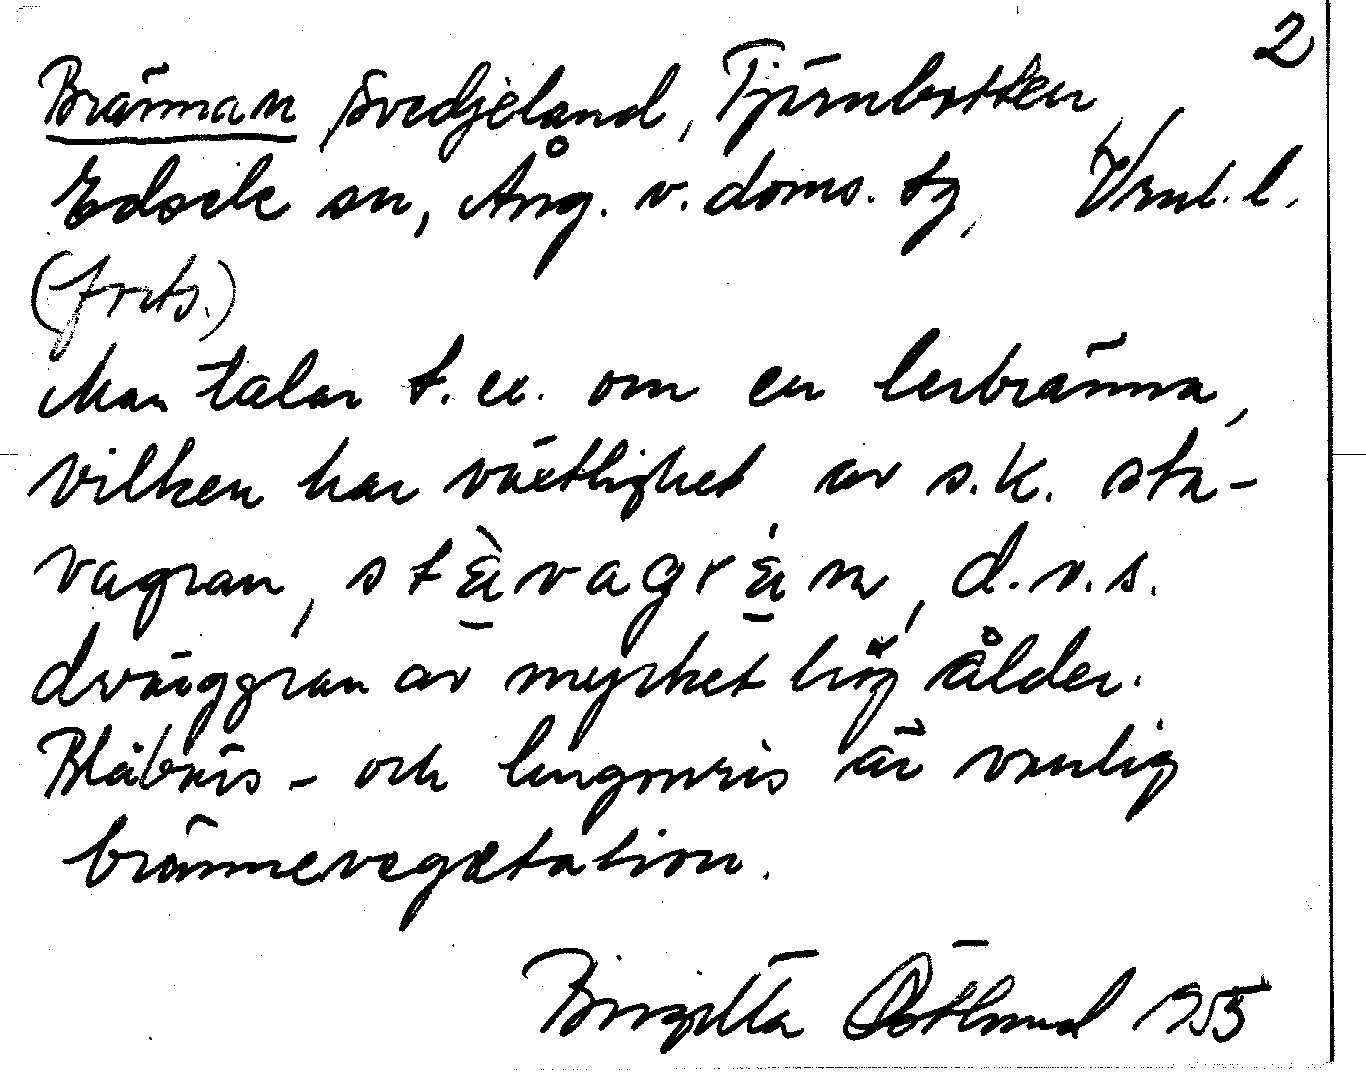 2
Brännan Svedjeland, Tjärnbotten,
Edsele sn, Ång. v. doms. tg, Vrnl. l.
(forts.)
Man talar t.ex. om en lerbränna,
vilken har växtlighet av s.k. sta-
vagran, stàvagrán, d.v.s.
dvärggran av mycket hög ålder.
Blåbärs- och lingonris är vanlig
brännevegetation.
Birgitta Östlund 1955